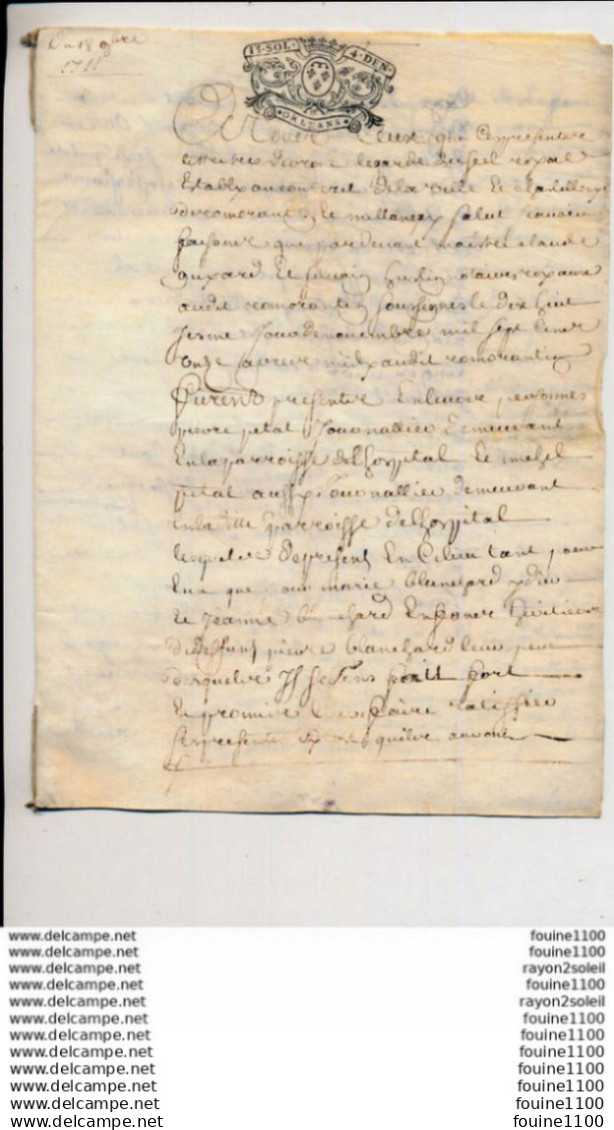 Du 18 9bre
1711
13·SOL· 4·DEN·
ORLEANS
A tous Ceux qui Cespresentes
Lettres Verront Le garde du seel royal
Establi aux contractz De la ville Et Chastellenye
de romorantin Et millancay salut
faisons que par devant maistre Claude
Et notaires royaux
audit romorantin soussignes Le dix huit
Jesme Jour de novembre mil sept Cent
Onze apres midy audit romorantin
Furent presentz En leurs personnes
pierre petat Journallier demeurant
En la parroisse delhospital Et michel
petat aussy Journallier demeurant
En la ditte parroisse delhospital
lesquelz depresent En Ce lieu tant pour
Eux que pour marie blanchard
Et Jeanne blanchard heritiere
du deffunt pierre blanchard leur pere
desquelles Ils se font fortt fort
Et promis faire ratiffier
Ces presentes
www.delcampe.net fouine1100
www.delcampe.net fouine1100
www.delcampe.net rayon2soleil
www.delcampe.net fouine1100
www.delcampe.net rayon2soleil
www.delcampe.net fouine1100
www.delcampe.net fouine1100
www.delcampe.net fouine1100
www.delcampe.net fouine1100
www.delcampe.net fouine1100
www.delcampe.net fouine1100
www.delcampe.net fouine1100